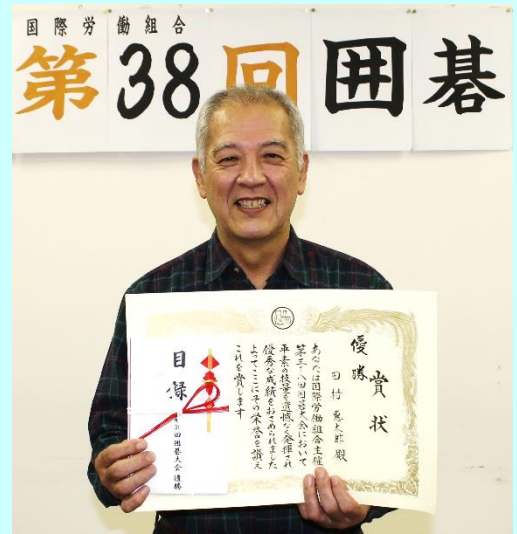 国際労働組合
第38回囲碁
賞状
優勝
田村恵太郎殿
あなたは国際労働組合主催
第三十八回囲碁大会において
平素の技量を遺憾なく発揮され
優秀な成績をおさめられました
よってここにその栄誉を讃え
これを賞します
目録
囲碁大会優勝